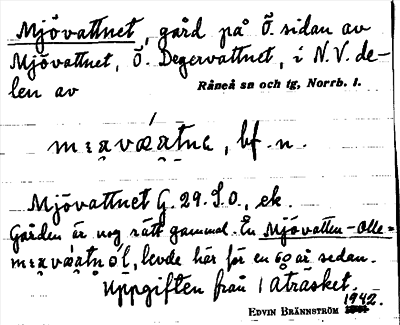 Mjövattnet, gård på Ö. sidan av
Mjövattnet, Ö. Degervattnet, i N.V. de-
len av
Råneå sn och tg, Norrb. l.
bf. n.
Mjövattnet G. 29. S.O., ek.
Gården är nog rätt gammal. En Mjövatten-Olle =
levde här för en 60 år sedan.
Uppgiften från 1 Åträsket.
1942.
EDVIN BRÄNNSTRÖM